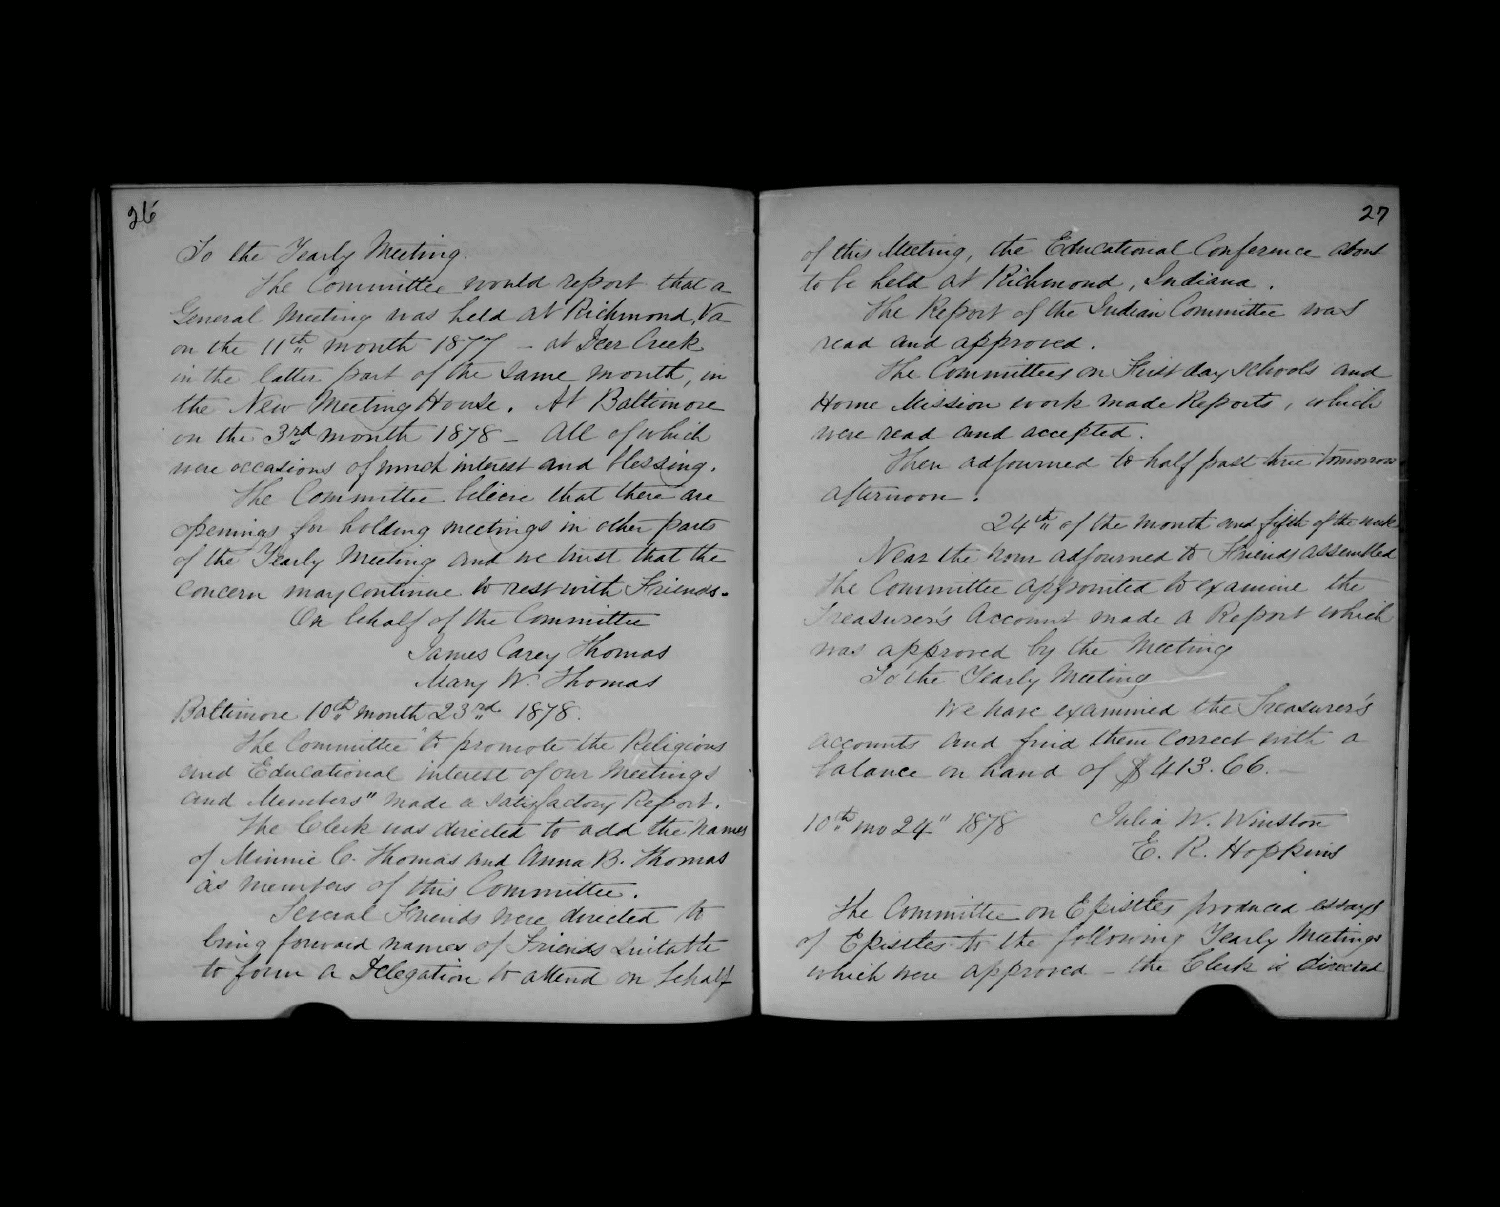 26
To the Yearly Meeting.
The Committee would report that a
General Meeting was held at Richmond, Va
on the 11th month 1877 – at Deer Creek
in the latter part of the same month, in
the New Meeting House. At Baltimore
on the 3rd month 1878 – All of which
were occasions of much interest and blessing.
The Committee believe that there are
openings for holding meetings in other parts
of the Yearly Meeting and we trust that the
concern may continue to rest with Friends.
On behalf of the Committee
James Carey Thomas
Mary W. Thomas
Baltimore 10th month 23rd 1878.
The Committee "to promote the Religious
and Educational interest of our Meetings
and Members" made a satisfactory Report.
The Clerk was directed to add the names
of Minnie C. Thomas and Anna B. Thomas
as members of this Committee.
Several Friends were directed to
bring forward names of Friends suitable
to form a Delegation to attend on behalf
27
of this Meeting, the Educational Conference about
to be held at Richmond, Indiana.
The Report of the Indian Committee was
read and approved.
The Committees on First day schools and
Home Mission work made Reports, which
were read and accepted.
Then adjourned to half past three tomorrow
afternoon.
24th of the month and fifth of the week
Near the hour adjourned to Friends assembled
The Committee appointed to examine the
Treasurer's Account made a Report which
was approved by the Meeting
To the Yearly Meeting
We have examined the Treasurer's
accounts and find them correct with a
balance on hand of $413.66. –
10th mo 24" 1878 Julia W. Winston
E. R. Hopkins
The Committee on Epistles produced essays
of Epistles to the following Yearly Meetings
which were approved – the Clerk is directed